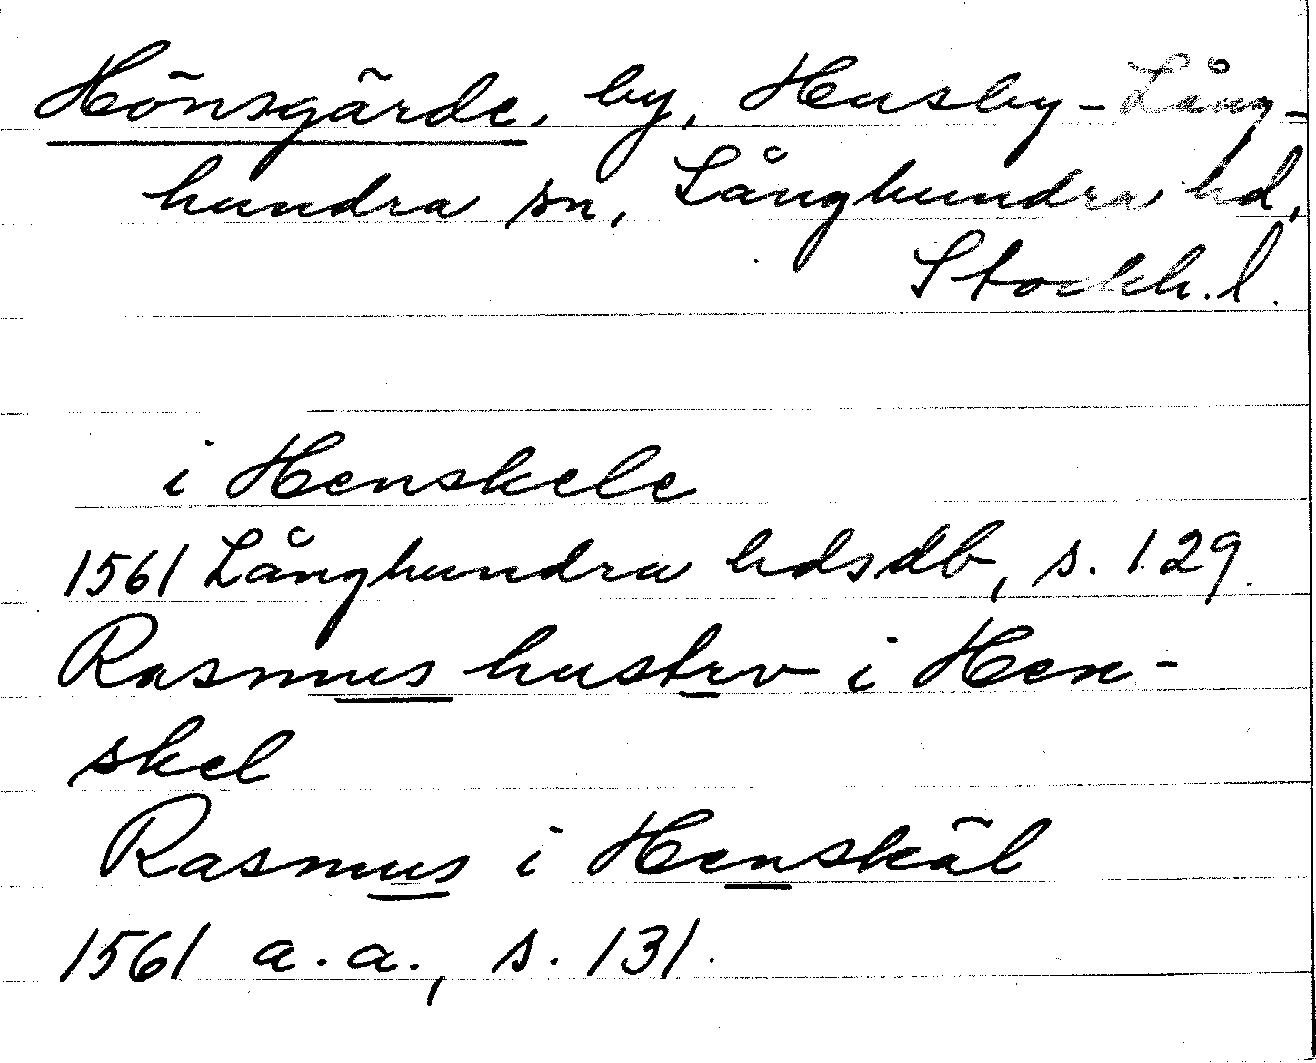 Hönsgärde, by, Husby-Lång-
hundra sn, Långhundra hd,
Stockh. l.
i Henskele
1561 Långhundra hdsdb, s. 129.
Rasmus hustrv i Hen-
skel
Rasmus i Henskäl
1561 a.a., s. 131.